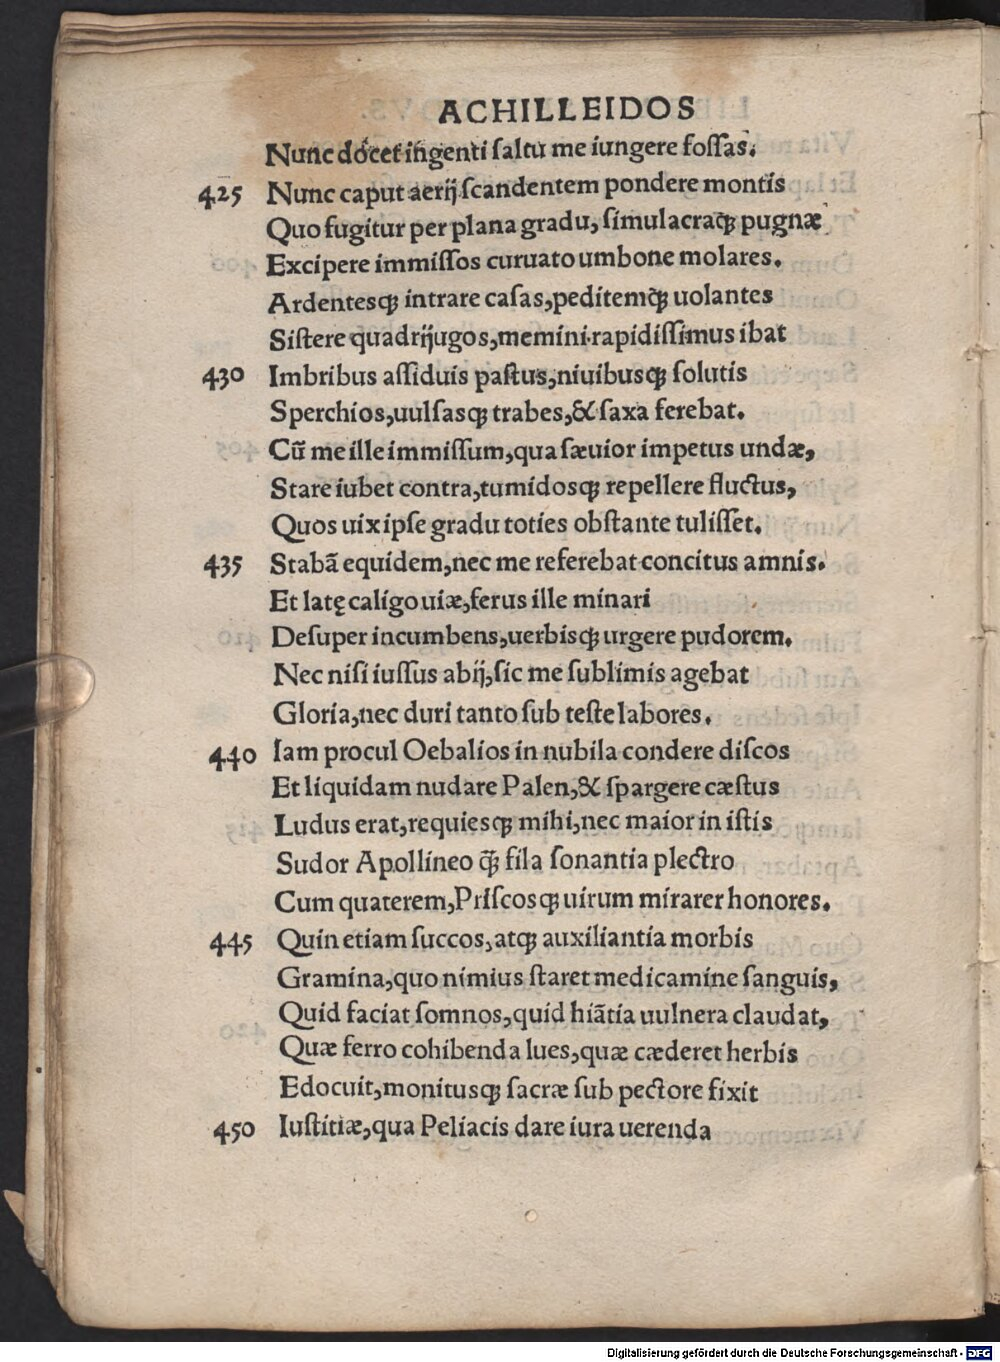 ACHILLEIDOS
Nunc docet ingenti ſaltu me iungere foſſas.
425 Nunc caput aerij ſcandentem pondere montis
Quo fugitur per plana gradu, ſimulacraq̃ꝫ pugnæ
Excipere immiſſos curuato umbone molares.
Ardentesqꝫ intrare caſas, peditemq̃ꝫ uolantes
Siſtere quadrijugos, memini rapidiſſimus ibat
430 Imbribus aſſiduis paſtus, niuibusqꝫ ſolutis
Sperchios, uulſasqꝫ trabes, & ſaxa ferebat.
Cũ me ille immiſſum, qua ſæuior impetus undæ,
Stare iubet contra, tumidosqꝫ repellere fluctus,
Quos uix ipſe gradu toties obſtante tuliſſet.
435 Stabã equidem, nec me referebat concitus amnis.
Et latę caligo uiæ, ferus ille minari
Deſuper incumbens, uerbisqꝫ urgere pudorem.
Nec niſi iuſſus abij, ſic me ſublimis agebat
Gloria, nec duri tanto ſub teſte labores.
440 Iam procul Oebalios in nubila condere diſcos
Et liquidam nudare Palen, & ſpargere cæſtus
Ludus erat, requiesqꝫ mihi, nec maior in iſtis
Sudor Apollineo q̃ꝫ fila ſonantia plectro
Cum quaterem, Priſcosqꝫ uirum mirarer honores.
445 Quin etiam ſuccos, atqꝫ auxiliantia morbis
Gramina, quo nimius ſtaret medicamine ſanguis,
Quid faciat ſomnos, quid hiãtia uulnera claudat,
Quæ ferro cohibenda lues, quæ cæderet herbis
Edocuit, monitusqꝫ ſacræ ſub pectore fixit
450 Iuſtitiæ, qua Peliacis dare iura uerenda
Digitalisierung gefördert durch die Deutsche Forschungsgemeinschaft - DFG